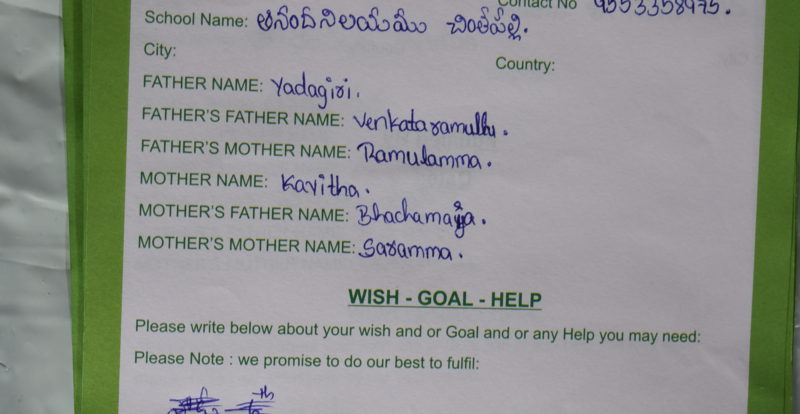 Contact No 9553358975.
School Name: ఆనందనిలయము చింతపల్లి.
City: Country:
FATHER NAME: Yadagiri.
FATHER'S FATHER NAME: Venkataramullu.
FATHER'S MOTHER NAME: Ramulamma.
MOTHER NAME: Kavitha.
MOTHER'S FATHER NAME: Bhachamaiya.
MOTHER'S MOTHER NAME: Saramma.
WISH - GOAL - HELP
Please write below about your wish and or Goal and or any Help you may need:
Please Note : we promise to do our best to fulfil: